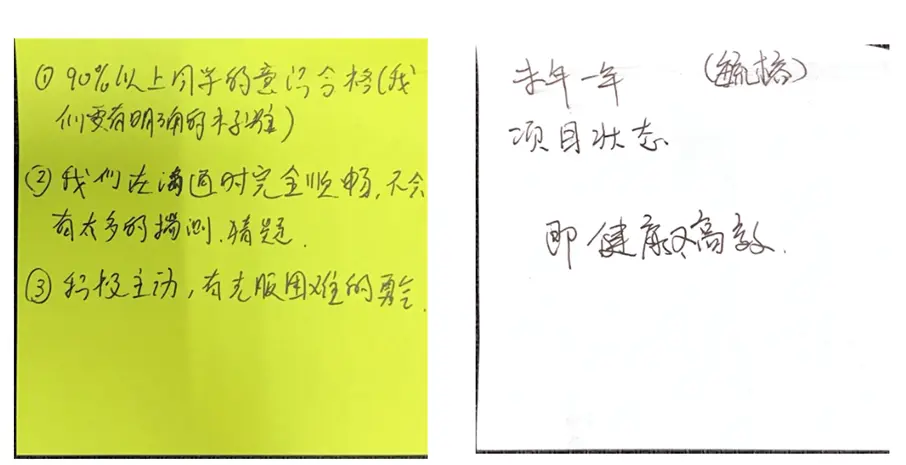 ① 90%以上同学的意识合格(我
们要有明确的标准)
② 我们在沟通时完全顺畅,不会
有太多的揣测、猜题.
③ 积极主动,有克服困难的勇气.
一年
项目状态
即健康又高效.